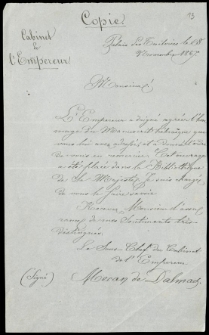 Copie
Cabinet
de
l'Empereur
Palais des Tuileries le
Novembre 1867
Monsieur
L'Empereur a daigné agréer l'hom
mage du Manuscrit
que
vous lui avez adressé et
de vous en remercier. Cet ouvrage
a été placé dans la Bibliothèque
de Sa Majesté. Je suis chargé
de vous le
Recevez, Monsieur, l'assu
rance de mes Sentiments très
distingués.
Le Sous Chef du Cabinet
de l'Empereur
(Signé)
de Dalmas